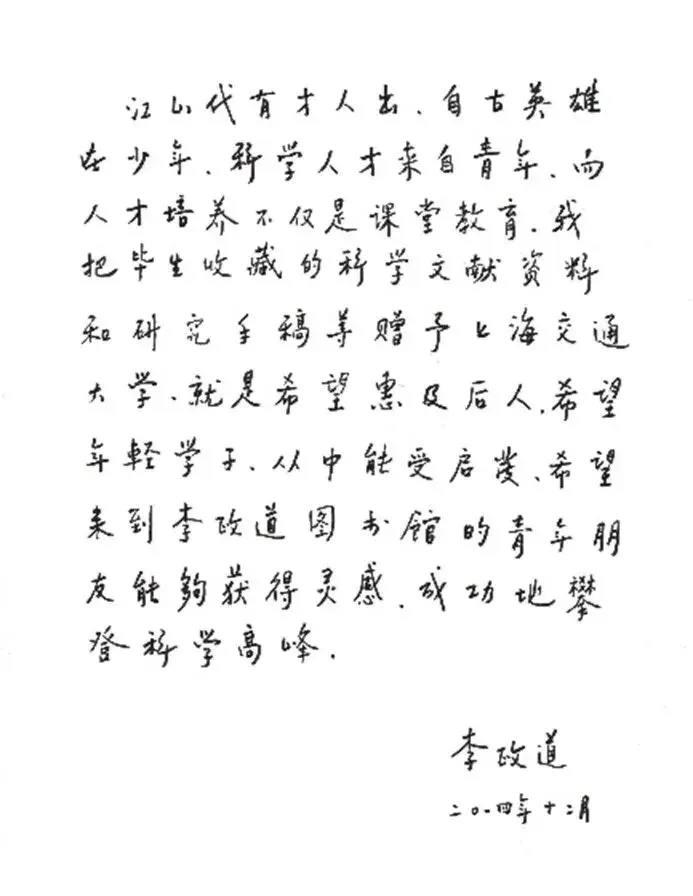 江山代有才人出、自古英雄
在少年、科学人才来自青年、而
人才培养不仅是课堂教育．我
把毕生收藏的科学文献资料
和研究手稿等赠予上海交通
大学、就是希望惠及后人．希望
年輕学子、从中能受启发、希望
来到李政道图书館的青年朋
友能夠获得灵感．成功地攀
登科学高峰．
李政道
二〇一四年十二月